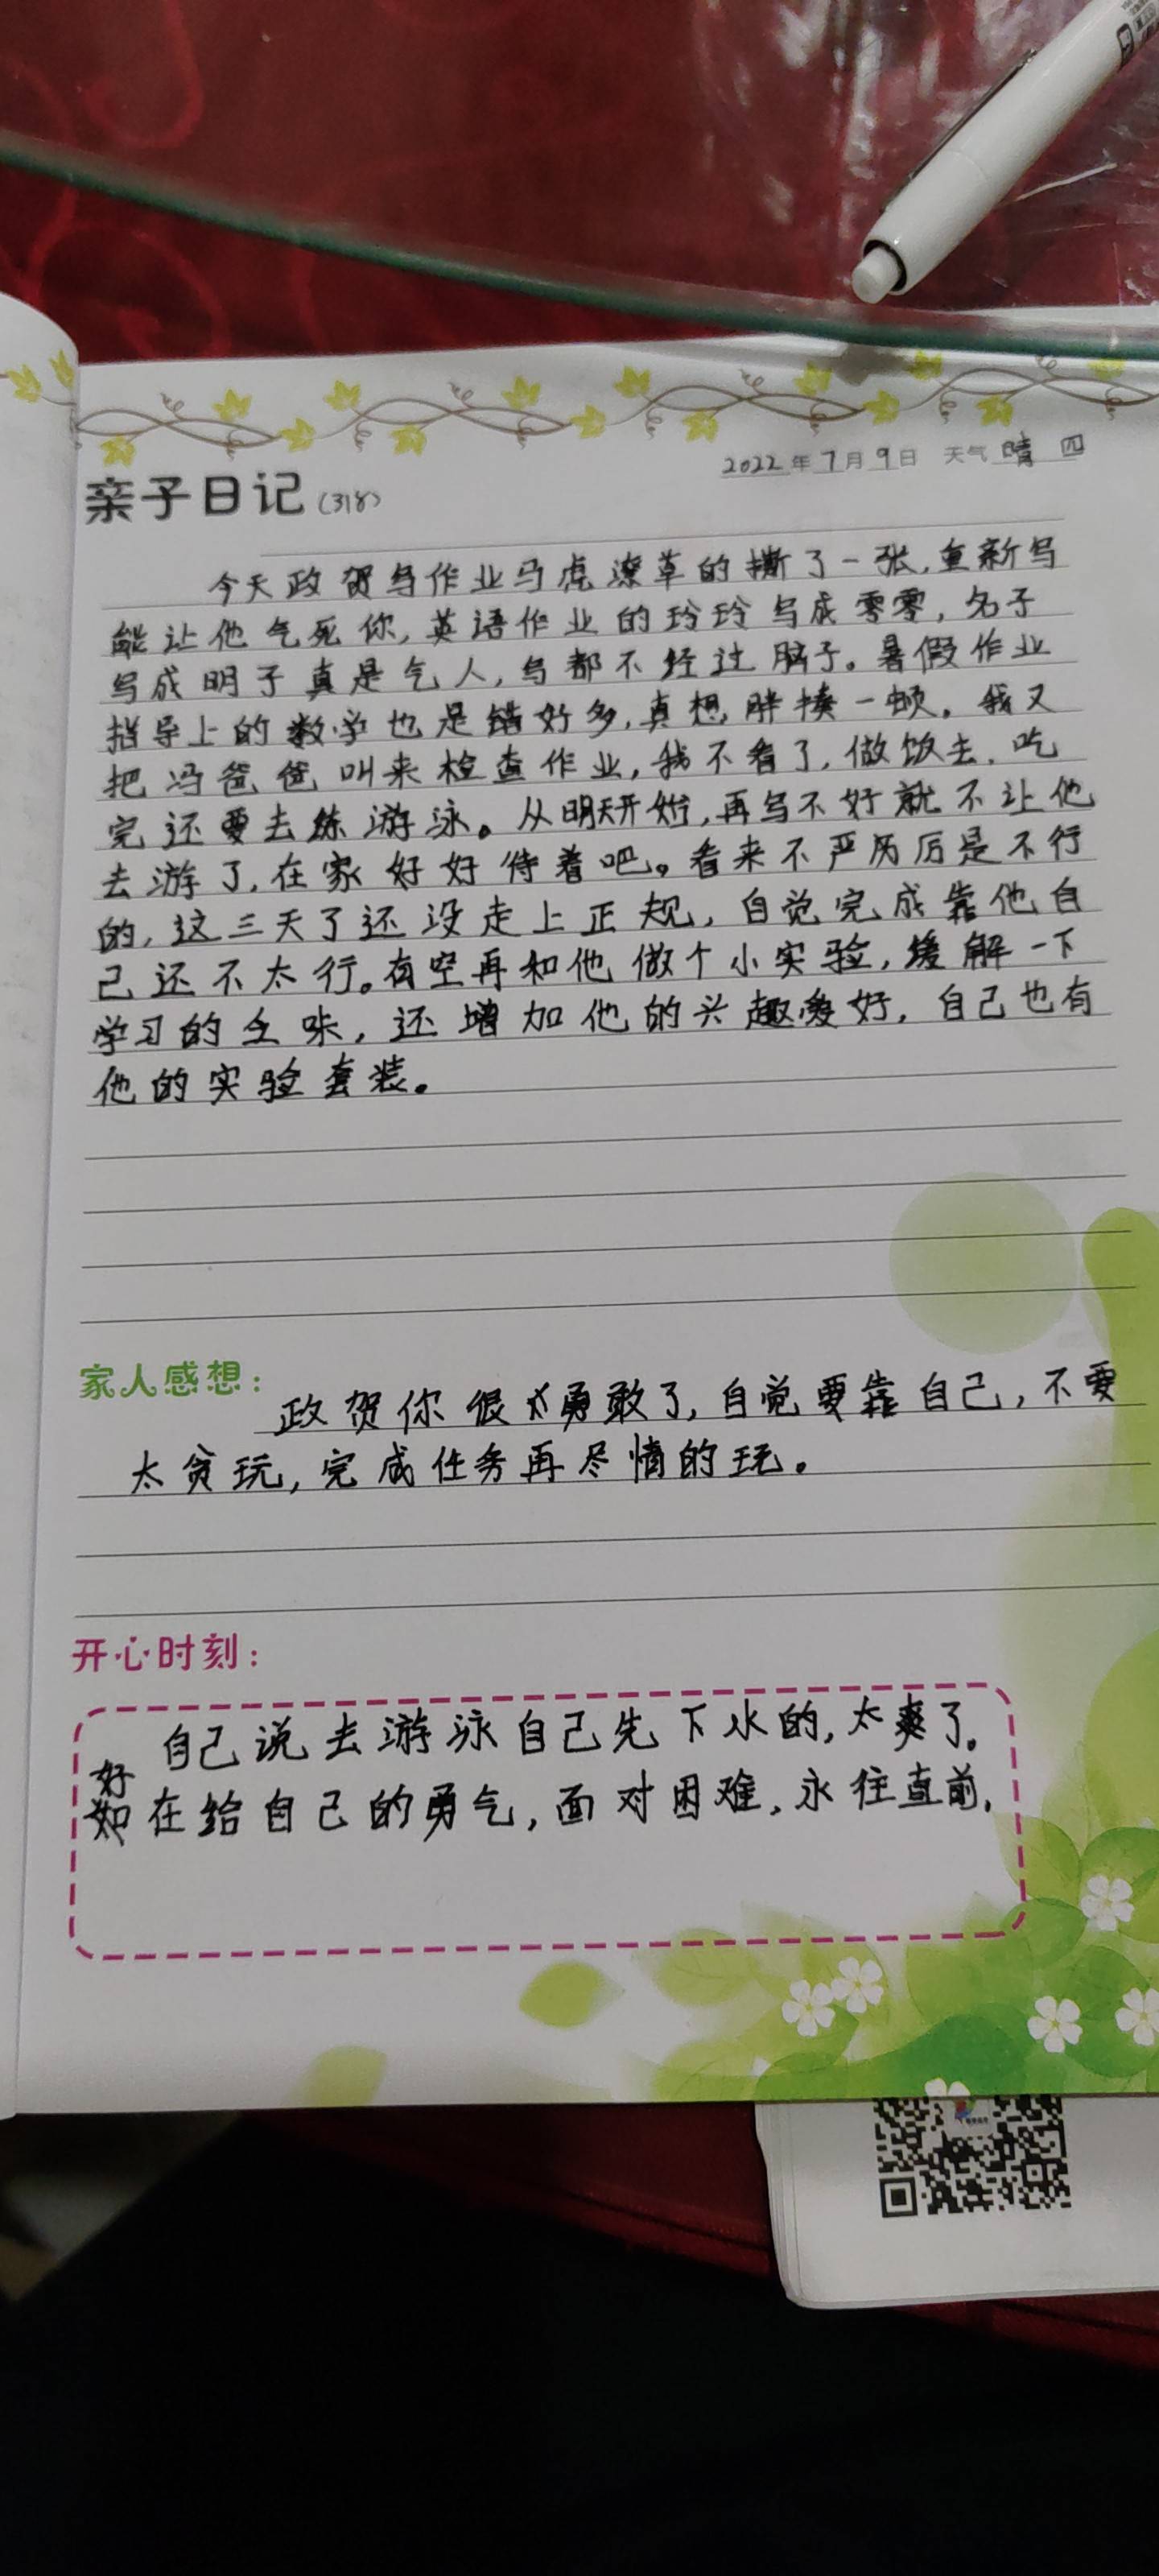 亲子日记(318) 2022年7月9日 天气 晴 四
今天政贺写作业马虎潦草的撕了一张,重新写
能让他气死你,英语作业的玲玲写成零零,名子
写成明子真是气人,写都不经过脑子。暑假作业
指导上的数学也是错好多,真想胖揍一顿。我又
把冯爸爸叫来检查作业,我不看了,做饭去.吃
完还要去练游泳。从明天开始,再写不好就不让他
去游了,在家好好待着吧。看来不严厉厉是不行
的,这三天了还没走上正规,自觉完成靠他自
己还不太行。有空再和他做个小实验,缓解一下
学习的乏味,还增加他的兴趣爱好,自己也有
他的实验套装。
家人感想:
政贺你很勇敢了,自觉要靠自己,不要
太贪玩,完成任务再尽情的玩。
开心时刻:
自己说去游泳自己先下水的,太爽了。
好
如在给自己的勇气,面对困难,永往直前,